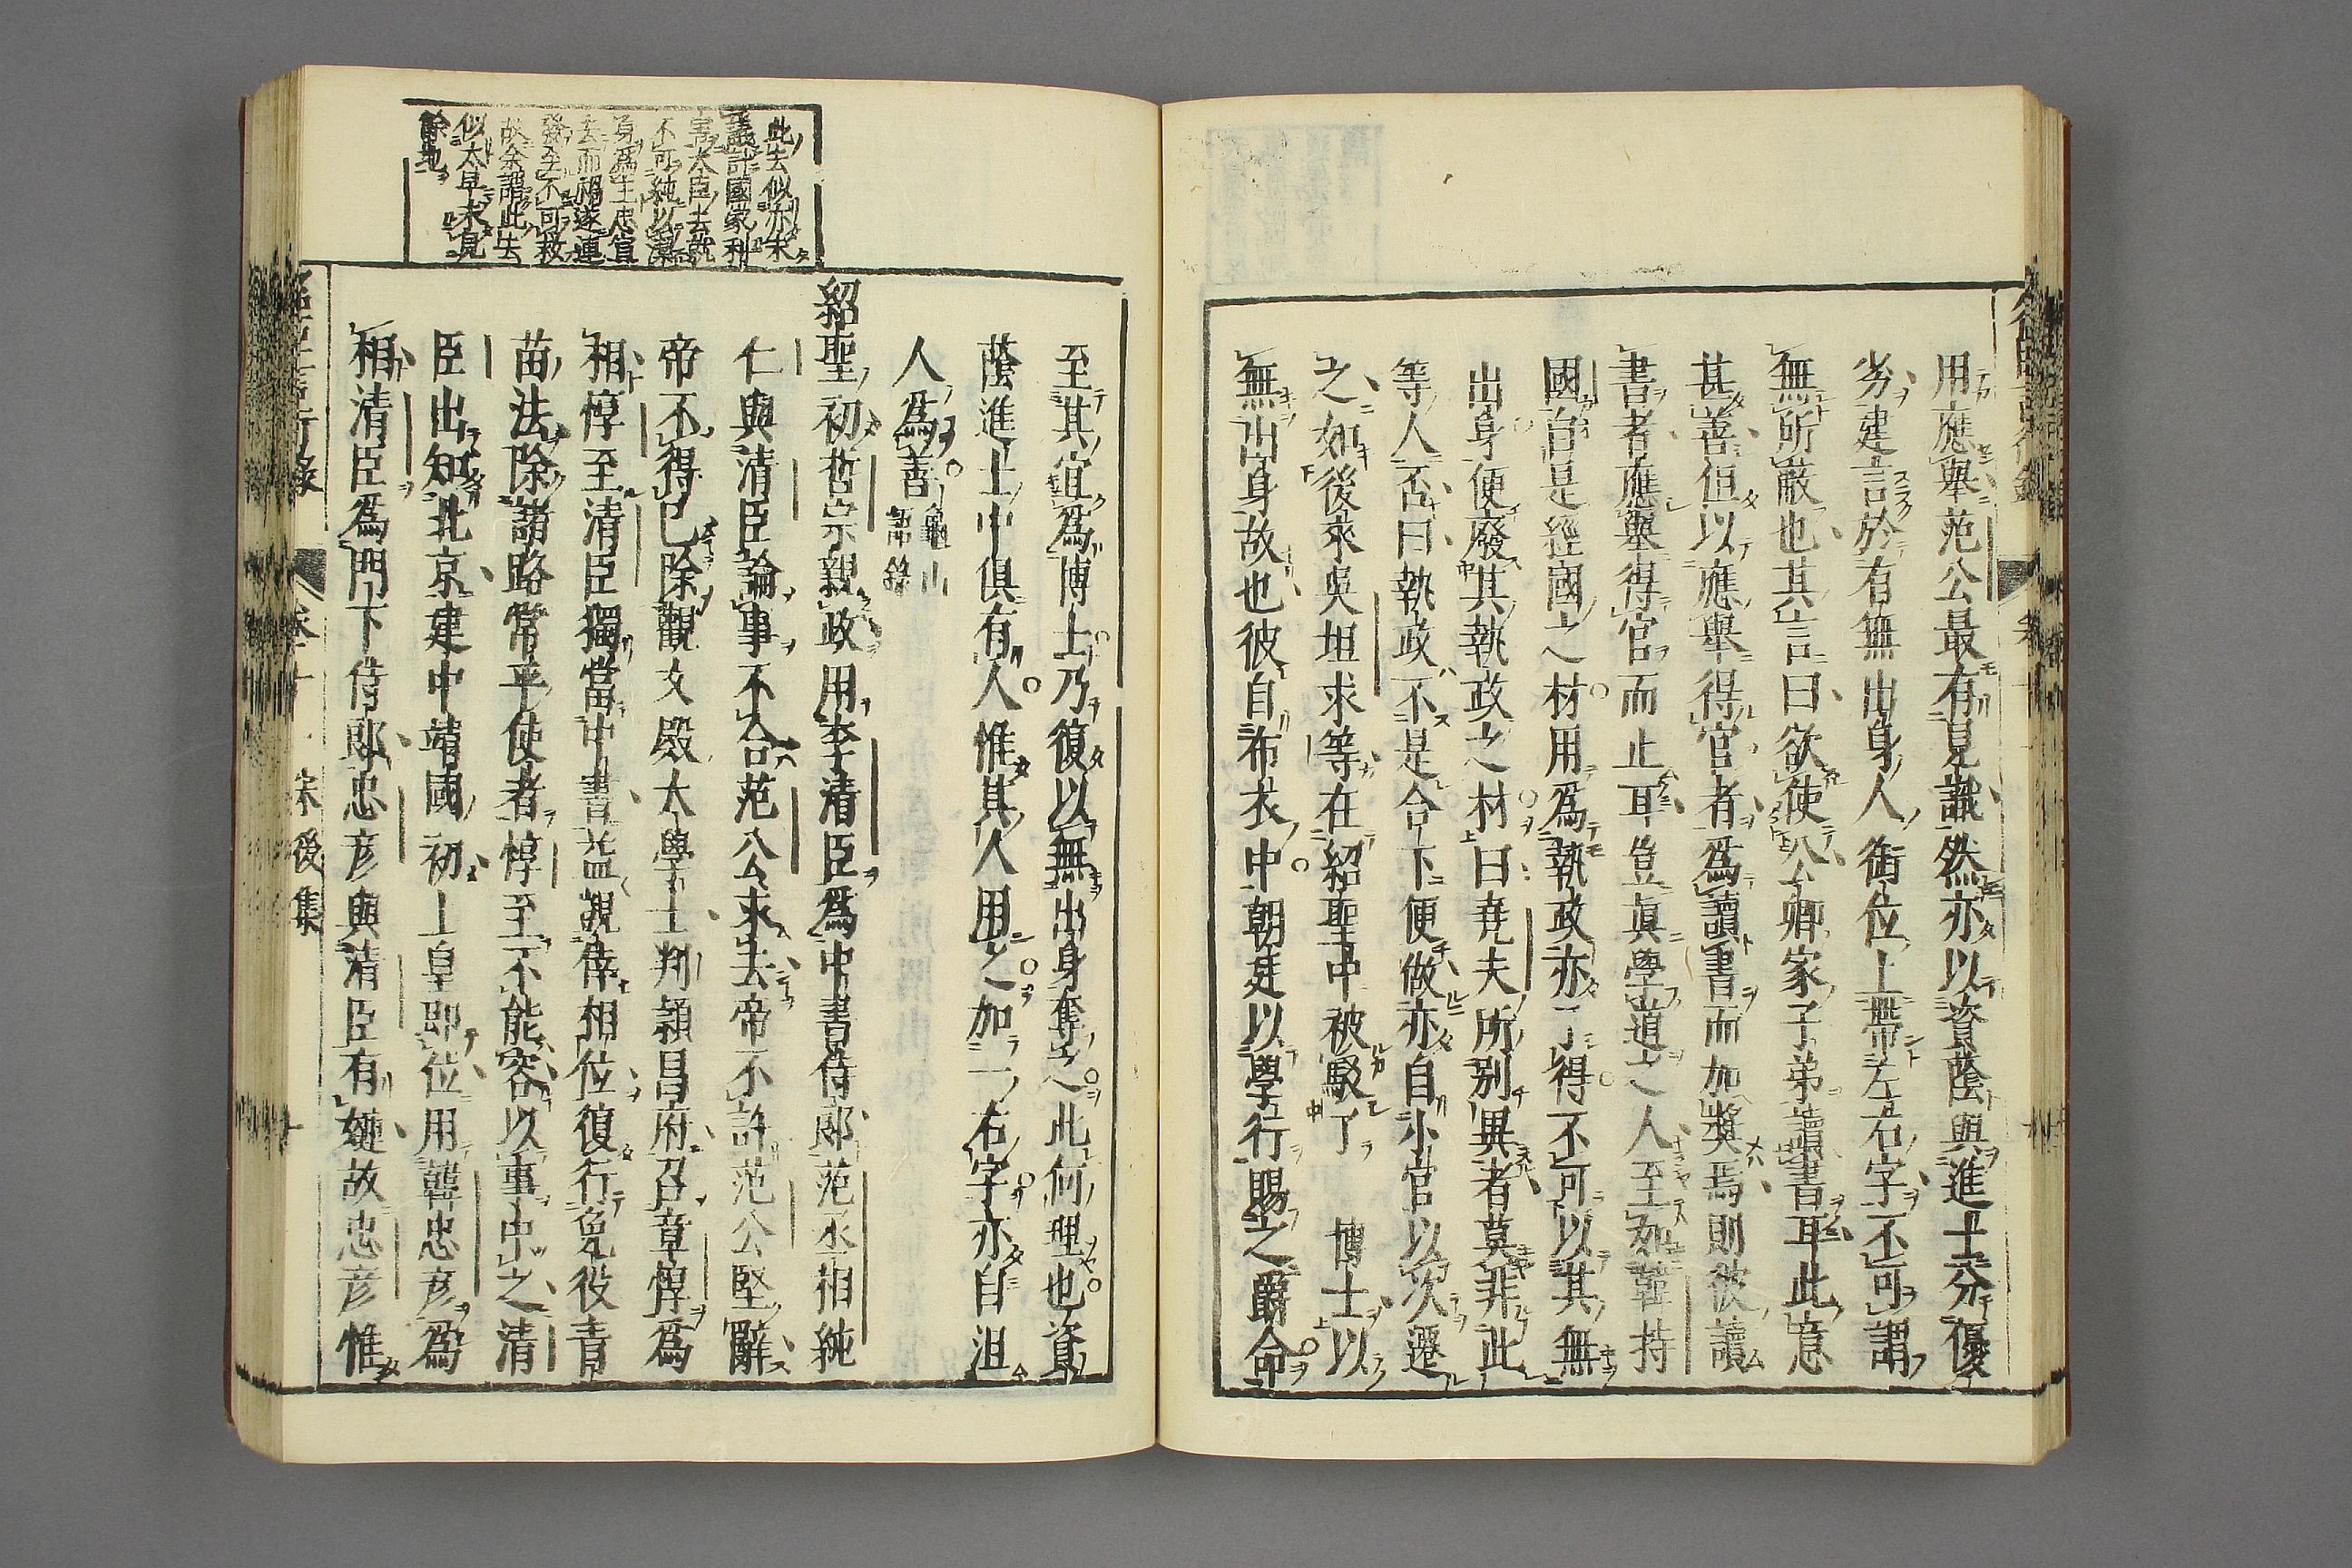 用應舉范公最有見識然亦以資蔭與進士分優
劣建言於有無出身人銜位上帶左右字不可謂
無所蔽也其言曰欲使公卿家子弟讀書耳此意
甚善但以應舉得官者爲讀書而加奬焉則彼讀
書者應舉得官而止耳豈眞學道之人至如韓持
國自是經國之材用爲執政亦了得不可以其無
出身便廢其執政之材曰堯夫所別異者莫非此
等人否曰執政不是合下便做亦自小官以次遷
之如後來吳坦求等在紹聖中被駁了 博士以
無出身故也彼自布衣中朝廷以學行賜之爵命
至其宜爲博士乃復以無出身奪之此何理也資
蔭進士中俱有人惟其人用之加一右字亦自沮
人爲善 龜山語錄
紹聖初哲宗親政用李清臣爲中書侍郎范丞相純
仁與清臣論事不合范公求去帝不許范公堅辭
帝不得已除觀文殿大學士判潁昌府召章惇爲
相惇至清臣獨當中書益覬倖相位復行免役青
苗法除諸路常平使者惇至不能容以事中之清
臣出知北京建中靖國初上皇卽位用韓忠彦爲
相清臣爲門下侍郎忠彦與清臣有㜕故忠彦惟
此去似亦未
盡計國家利
害大臣去就
不可純以潔
身爲主忠宣
去而禍遂連
發至不可救
故余謂此去
似太早未見
餘地
宋後集